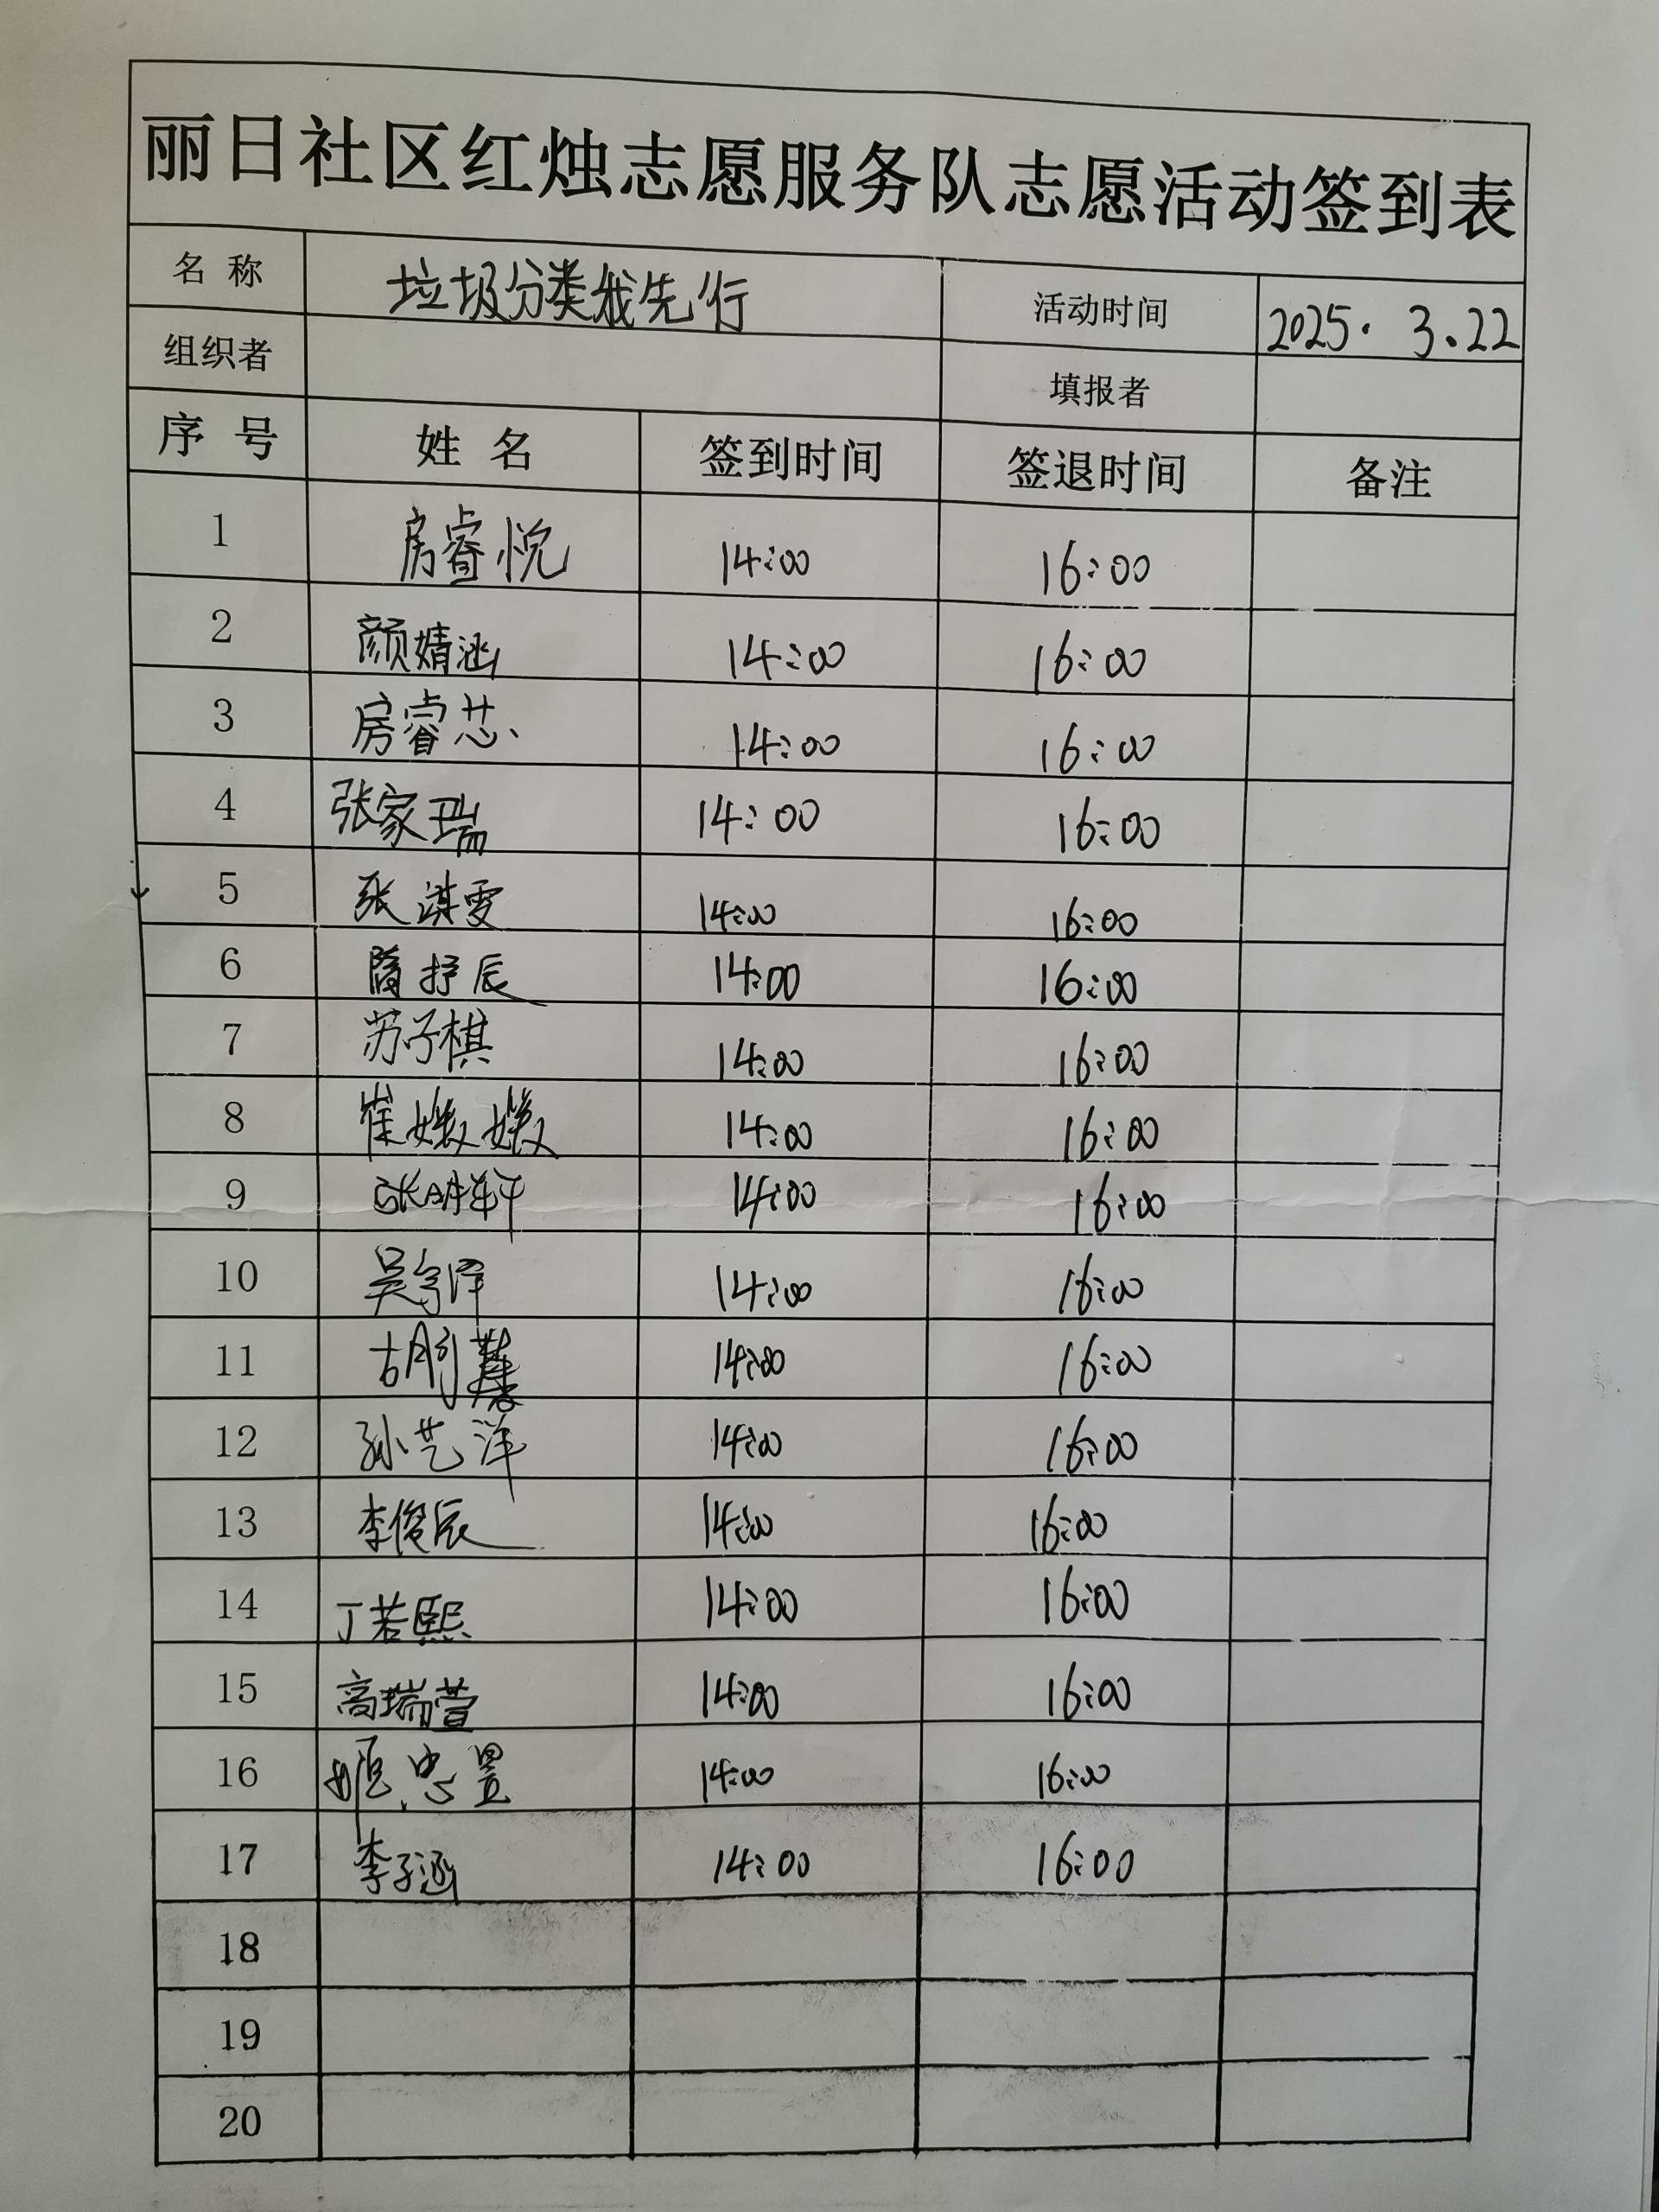 丽日社区红烛志愿服务队志愿活动签到表
名 称 垃圾分类我先行 活动时间 2025. 3.22
组织者 填报者
序 号 姓 名 签到时间 签退时间 备注
1 房睿悦 14:00 16:00
2 颜婧涵 14:00 16:00
3 房睿芯 14:00 16:00
4 张家瑞 14:00 16:00
5 张淇雯 14:00 16:00
6 隋抒辰 14:00 16:00
7 苏子棋 14:00 16:00
8 崔媺媺 14:00 16:00
9 张明轩 14:00 16:00
10 吴宇泽 14:00 16:00
11 14:00 16:00
12 孙艺洋 14:00 16:00
13 李俊辰 14:00 16:00
14 丁若熙 14:00 16:00
15 高瑞萱 14:00 16:00
16 姬忠昱 14:00 16:00
17 李子涵 14:00 16:00
18
19
20